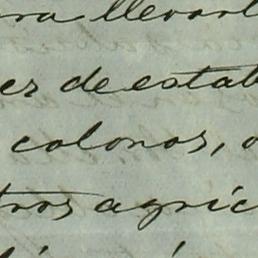 ra llevarl
er de estab
colonos, o
tros agríc